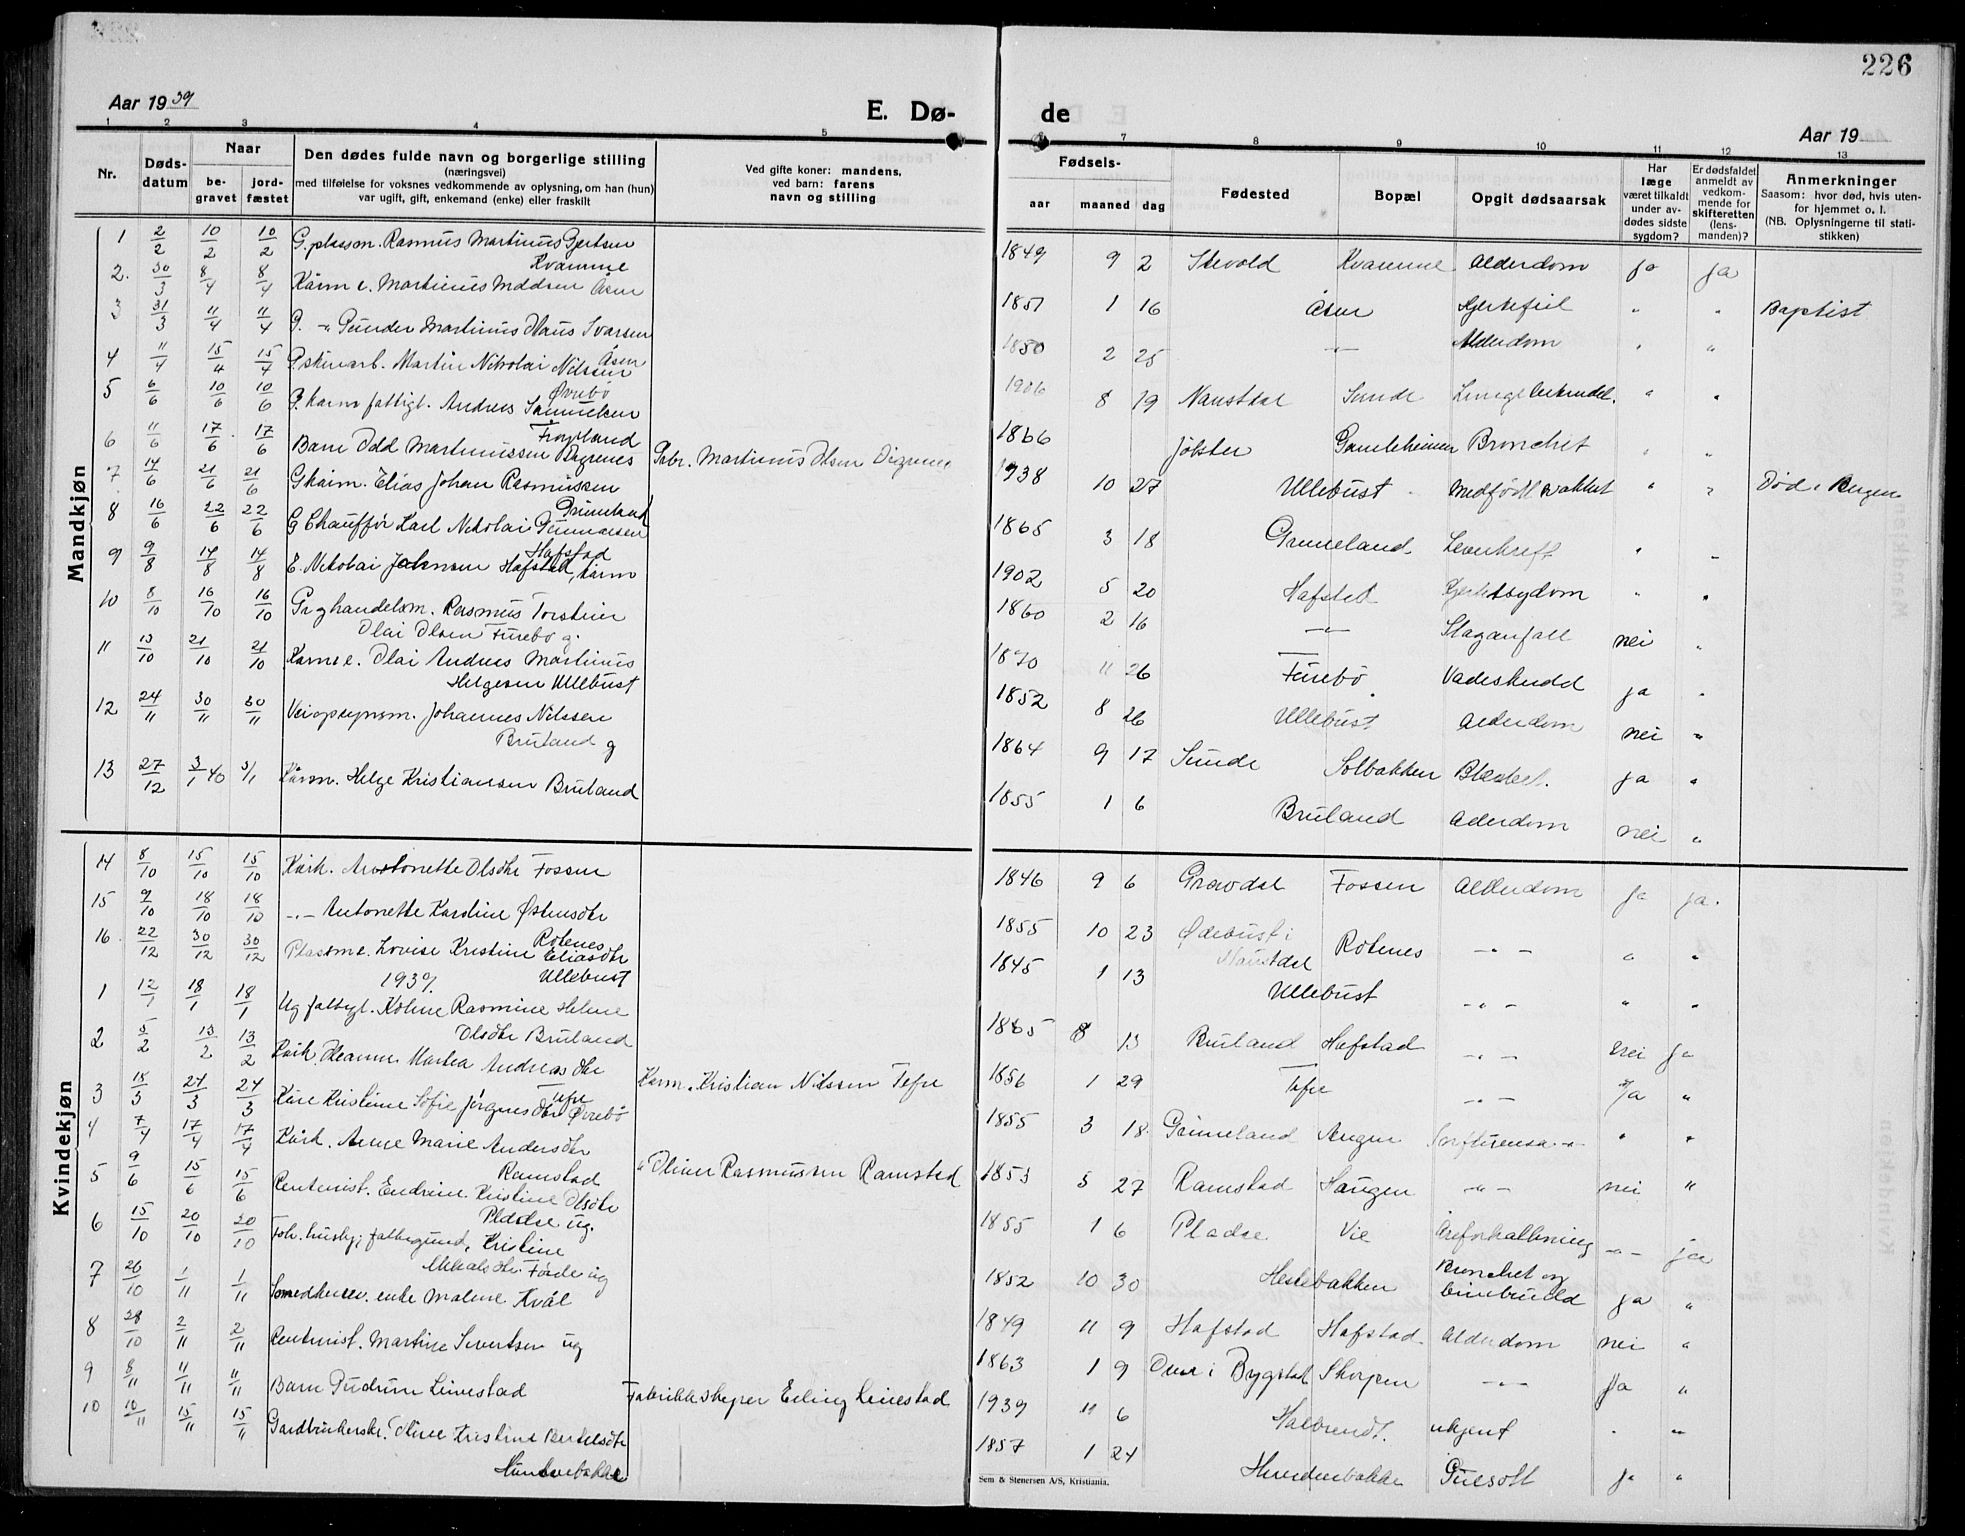 226
Aar 1939
E. Dø-
de
Aar 19
1 2 3 4 5 6 7 8 9 10 11 12 13
Nr.
Døds-
datum
Naar
be-
gravet
jord-
fæstet
Den dødes fulde navn og borgerlige stilling
(næringsvei)
med tilføielse for voksnes vedkommende av oplysning, om han (hun)
var ugift, gift, enkemand (enke) eller fraskilt
Ved gifte koner: mandens,
ved barn: farens
navn og stilling
Fødsels-
aar maaned dag
Fødested
Bopæl
Opgit dødsaarsak
Har
læge
været tilkaldt
under av-
dødes sidste
sygdom?
Er dødsfaldet
anmeldt av
vedkom-
mende for
skifteretten
(lens-
manden)?
Anmerkninger
Saasom: hvor død, hvis uten-
for hjemmet o. l.
(NB. Oplysningerne til stati-
stikken)
Mandkjøn
1 2/2 10/2 10/2 G. plassm. Rasmus Martinus Gjertsen
Kvamme
1849 9 2 Kvamme Alderdom ja ja
2. 30/3 8/4 8/4 Kårm e. Martinus Maddsen Åsen
1851 1 16 Åsen Hjertefeil " " Baptist
3 31/3 11/4 11/4 G. -"- Gunder Martinus Claus Ivarsen
Åsen
1850 2 25 -"- Alderdom " "
4 11/4 15/4 15/4 Martin Nikolai Nilssen
Øvrebø
1906 8 19 Naustdal Sunde " "
5 6/6 10/6 10/6 G. kårm fattigl. Andreas Samuelsen
1866 Jølster Gamleheimen Bronchit " "
6 11/6 17/6 17/6 Barn Odd Martinussen Digrenes Martinus Olsen Digrenes
1938 10 27 Ullebust Medfödt svakhet " " Död i Bergen
7 14/6 21/6 21/6 G kårm. Elias Johan Rasmussen
Grimeland
1865 3 18 Grimeland " "
8 16/6 22/6 22/6 G Chauffør Karl Nikolai Gunnarsen
Hafstad
1902 5 20 Hafstad Hjertesygdom " "
9 9/8 14/8 14/8 E. Nikolai Johnsen Hafstad, kårm
1860 2 16 -"- Slaganfall nei "
10 8/10 16/10 16/10 Rasmus Torstein
Olai Olsen Furebø g.
1870 11 26 Furebø Vadeskudd ja "
11 13/10 21/10 21/10 Karm e. Olai Andreas Martinus
Helgesen Ullebust
1852 8 26 Ullebust Alderdom nei "
12 24/11 30/11 30/11 Veiopsynsm. Johannes Nilssen
Bruland g
1864 9 17 Sunde Solbakken ja "
13 27/12 3/1 40 3/1 Kårm. Helge Kristiansen Bruland
1855 1 6 Bruland Alderdom nei "
Kvindekjøn
14 8/10 15/10 15/10 Kårk. Antonette Olsdtr Fossen
1846 9 6 Gravdal Fossen Alderdom ja ja.
15 9/10 18/10 18/10 -"- Antonette Karoline Østensdtr
Rotenes
1855 10 23 Ødebust i
Naustdal Rotenes -"- " "
16. 22/12 30/12 30/12 Plassm e. Lovise Kristine Eliasdtr
Ullebust
1845 1 13 Ullebust -"- " "
1939.
1 12/1 18/1 18/1 Ug fattigl. Rasmine Helene
Olsdtr Bruland
1865 8 13 Bruland Hafstad -"- nei ja
2 5/2 13/2 13/2 Kårk. Martea Andreasdtr
Tefre Karm. Kristian Nilssen Tefre
1856 1 29 Tefre -"- ja "
3 18/3 24/3 24/3 Kristine Sofie Jörgensdtr Øvrebø
1855 3 18 Grimeland Angen " "
4 7/4 17/4 17/4 Kårk. Anne Marie Andersdtr
Ramstad " Oliver Rasmussen Ramstad
1853 5 27 Ramstad Haugen -"- nei "
5 9/6 15/6 15/6 Rentenist. Endrine Kristine Olsdtr
Pladse ug.
1855 1 6 Pladse Vie Åreforkalkning -"- ja
6 15/10 20/10 20/10 Kristine
Mikalsdtr. Förde ug
1852 10 30 Hestebakken Bronchit og
benbrudd ja "
7 26/10 1/11 1/11 enke Malene Kvål
1849 11 9 Hafstad Hafstad Alderdom nei "
8 28/10 2/11 2/11 Rentenist. Martine Sivertsen ug
1863 1 9 Bygstad Skorpen -"- ja "
9 8/11 11/11 11/11 Barn Gudrun Linestad Fabrikkskeper Erling Linestad
1939 11 6 Halbrendt. ukjent " "
10 10/11 15/11 15/11 Gardbrukerske. Oline Kristine Bertelsdtr
Hundvebakke
1857 1 24 Hundvebakke Gulsott ja "
Sem & Stenersen A/S, Kristiania.